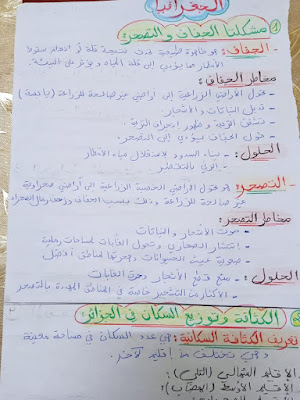 الجغرافيا
① مشكلتا الجفاف والتصحر:
- الجفاف: هو ظاهرة طبيعية تحدث نتيجة قلة أو انعدام سقوط
الأمطار مما يؤدي إلى قلة المياه و يؤثر على البيئة.
مخاطر الجفاف:
- تحول الأراضي الزراعية إلى أراضي غير صالحة للزراعة (يابسة)
- ذبول النباتات والأشجار
- تشقق التربة و ظهور إنجراف التربة
- طول الجفاف يؤدي إلى التصحر
الحلول: - بناء السدود لاستغلال مياه الأمطار
- الري بالتقطير
- التصحر: هو تحول الأراضي الخصبة الزراعية إلى أراضي صحراوية
غير صالحة للزراعة، وذلك بسبب الجفاف وزحف رمال الصحراء
مخاطر التصحر:
- موت الأشجار و النباتات
- إنتشار الصحاري وتحول الغابات لمساحات رملية
- صعوبة عيش الحيوانات وهجرتها لمناطق أفضل
الحلول: - منع قطع الأشجار وحرق الغابات
- الإكثار من التشجير خاصة في المناطق المهددة بالتصحر
الكثافة وتوزيع السكان في الجزائر:
تعريف الكثافة السكانية: هي عدد السكان في مساحة معينة
وهي تختلف من إقليم لآخر.
الإقليم الشمالي (التلي):
الإقليم الأوسط (الهضاب):